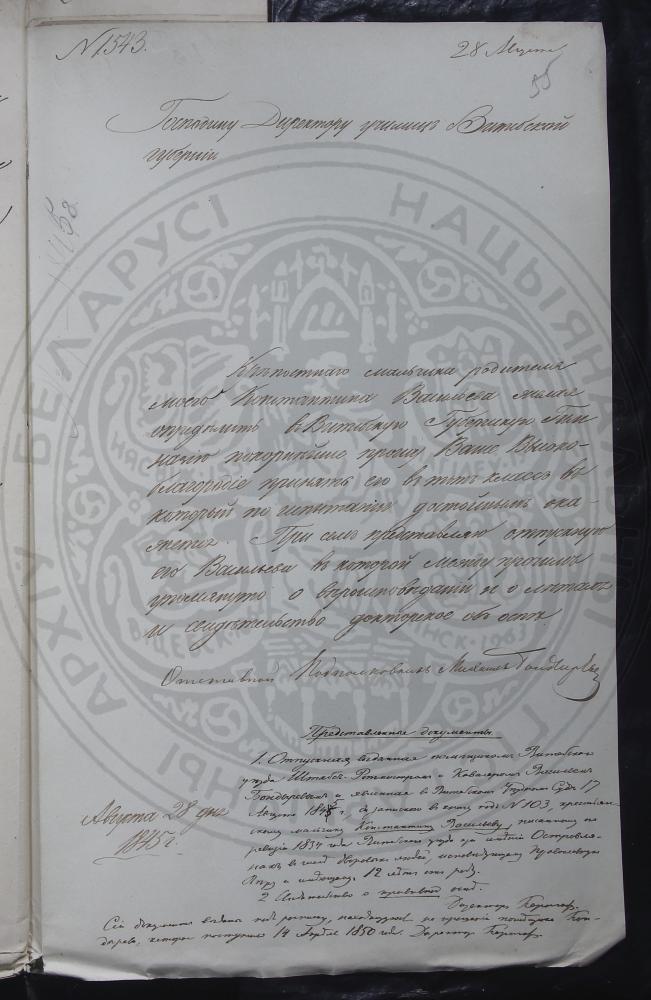 N 1543.
28 Августа
55
Господину Директору училищ Витебской
губернии
Крѣпостнаго мальчика родителя
моего Константина Васильева желая
опредѣлить въ Витебскую Губернскую Гим
назію покорнѣйше прошу Ваше Высоко-
благородіе принять его въ тотъ классъ въ
который по испытаніи достойнымъ ока-
жется. При семъ представляю отпускную
его Васильева въ которой между прочимъ
упомянуто о вѣроисповѣданіи и о лѣтахъ
и свидѣтельство докторское объ оспѣ
Отставной Подполковникъ Михаилъ
Представленные документы
1. Отпускная выданная помѣщикомъ Витебскаго
уѣзда Штабсъ-Ротмистромъ и Кавалеромъ Васильемъ
Бондыревымъ и явленная въ Витебскомъ Уѣздномъ Судѣ 17
Августа 1845 г. и записана въ книгу подъ N 103, крестьян-
скому мальчику Константину Васильеву, писанному по
ревизіи 1834 года Витебскаго уѣзда при имѣніи Островля-
нахъ въ числѣ дворовыхъ людей, исповѣдующему Православную
вѣру и имѣющему 12 лѣтъ отъ роду.
2 Свидѣтельство о привитіи оспы.
Директоръ
Августа 28 дня
1845 г.
Сіи документы выданы подъ росписку, находящуюся на прошеніи помѣщика Бон-
дырева, которое поступило 14 1850 года. Директоръ
НАЦЫЯНАЛЬНЫ
АРХІЎ БЕЛАРУСІ